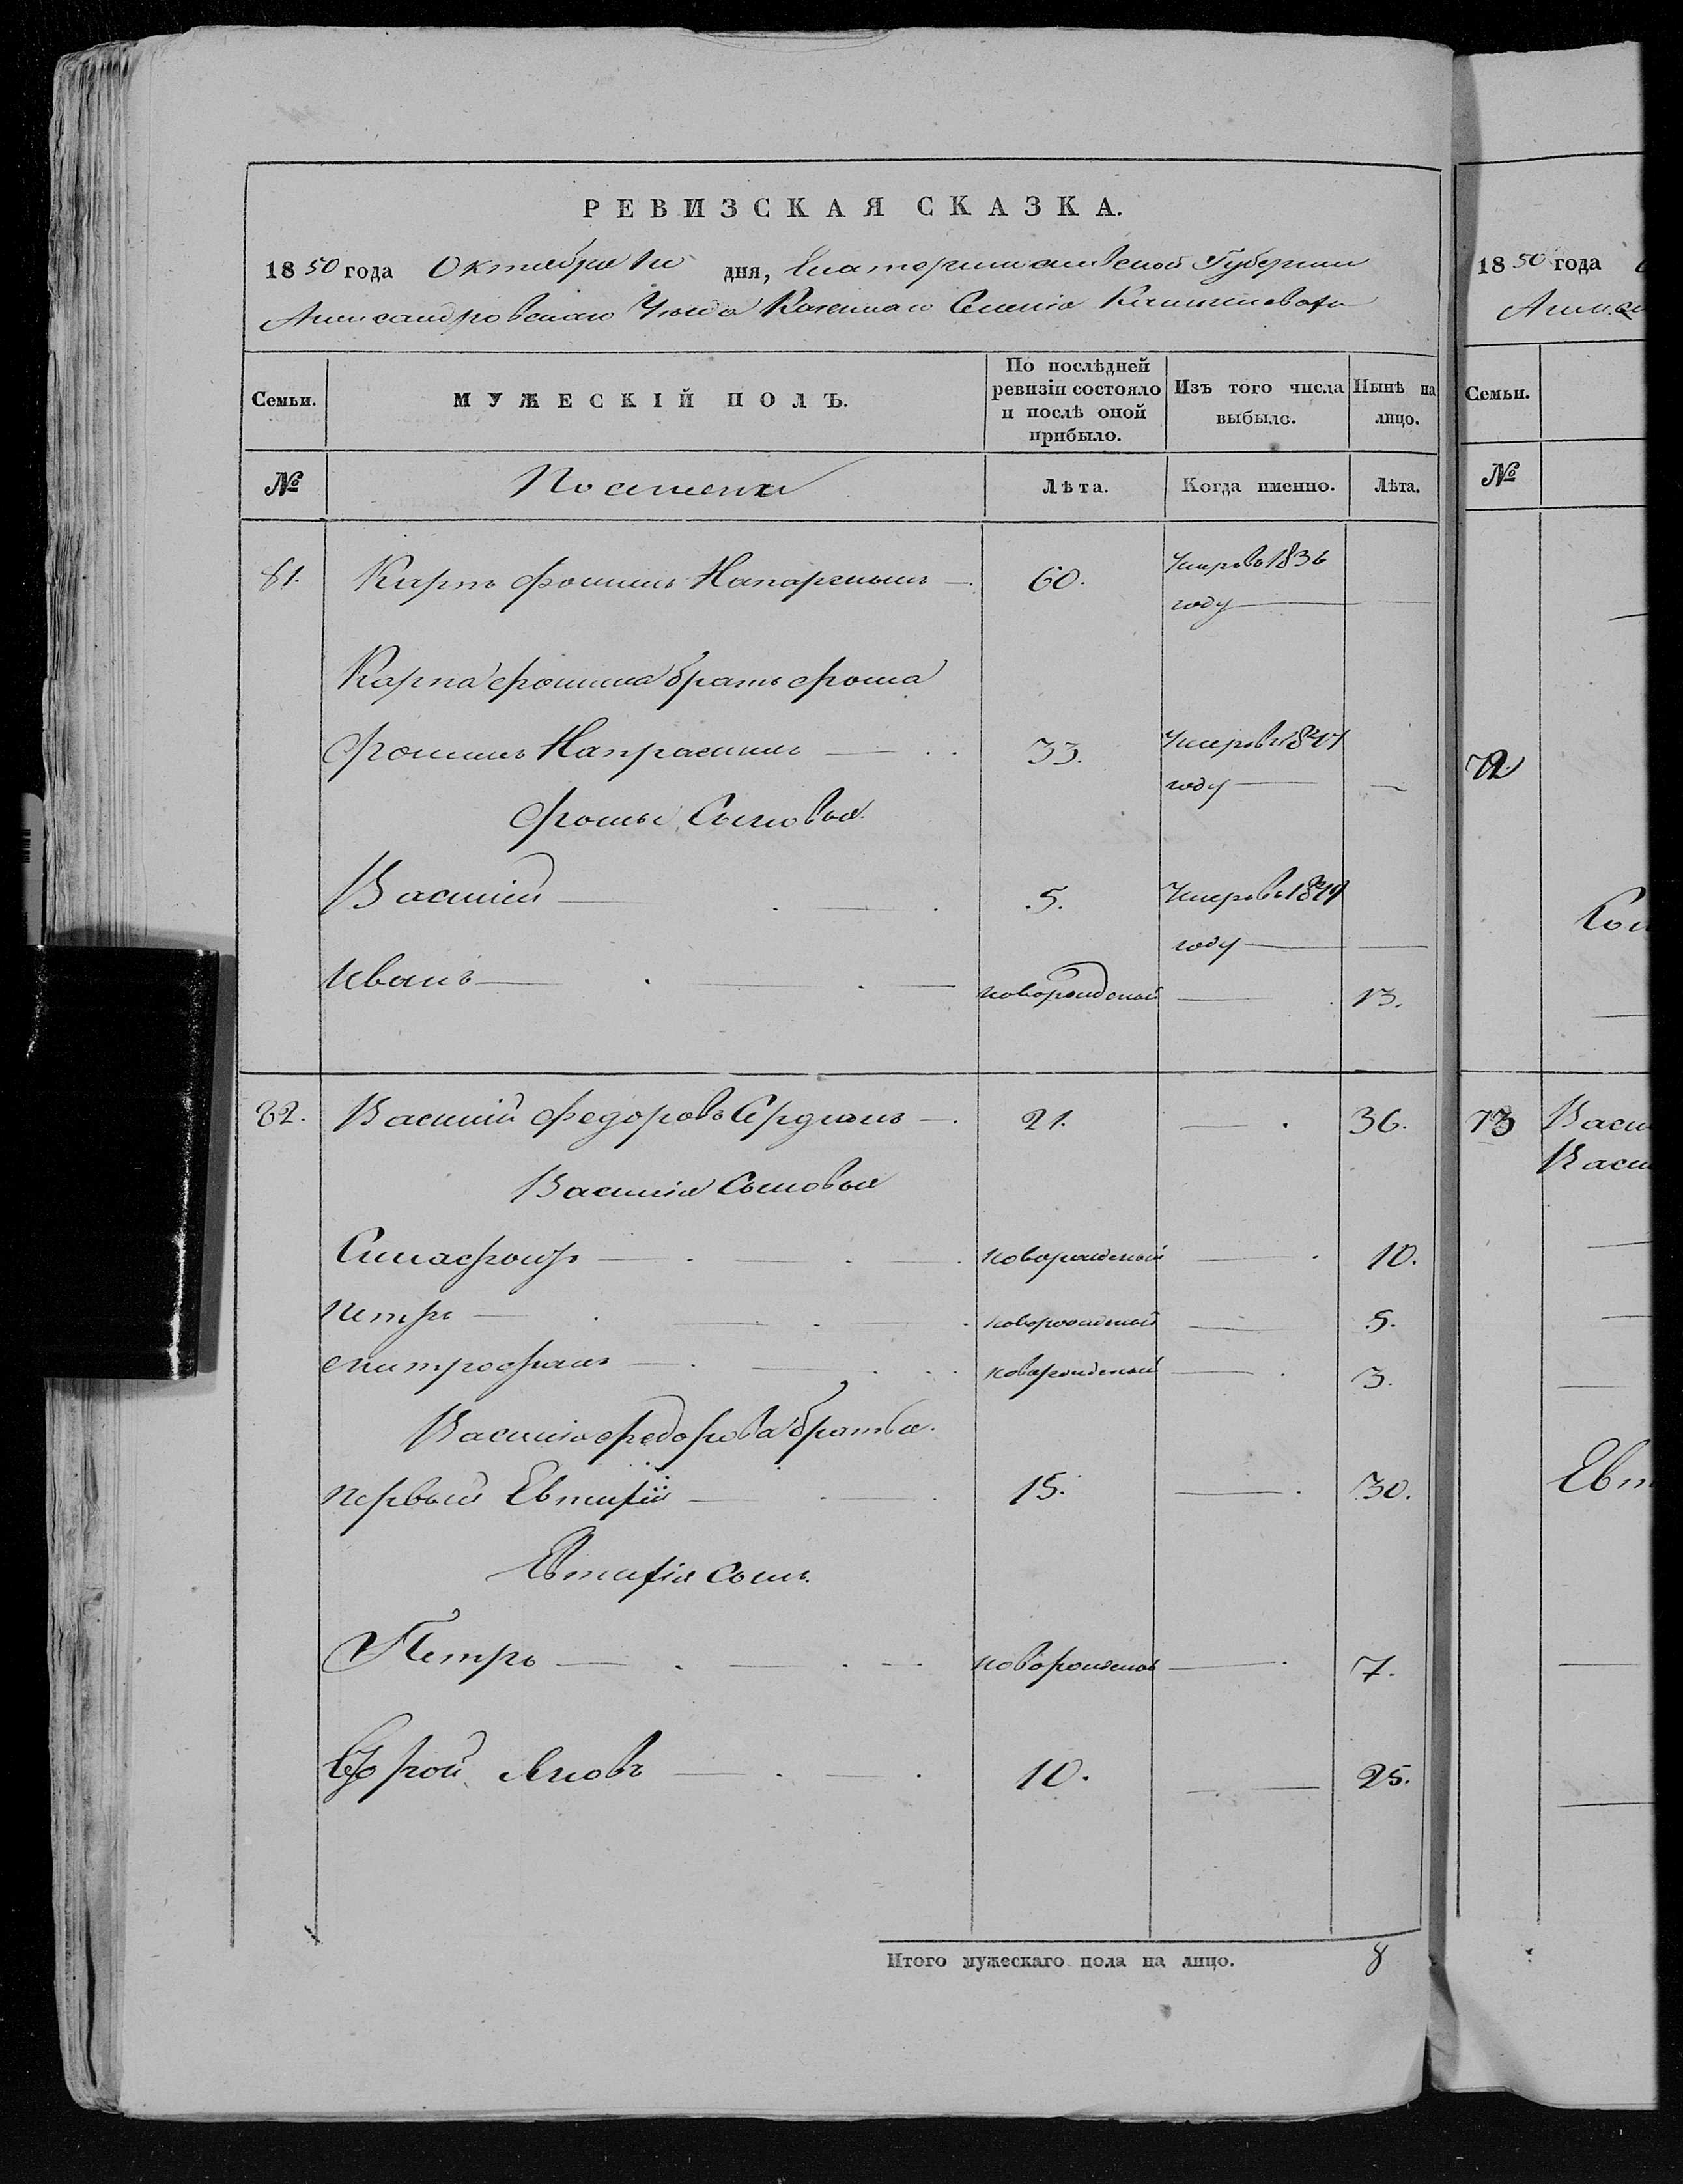 РЕВИЗСКАЯ СКАЗКА.
1850 года Октября дня, Екатеринославской Губернии
Александровскаго Уезда Казеннаго Селенія
Семьи.
МУЖЕСКІЙ ПОЛЪ.
По послѣдней ревизіи состояло и послѣ оной прибыло.
Изъ того числа выбыло.
Нынѣ на лицо.
№
Лѣта.
Когда именно.
Лѣта.
81. Карпъ Фоминъ 60. Умеръ въ 1836
году
Карпа Фомина братъ Фома
Фоминъ 33. Умеръ въ 1847
году
Фомы Сыновья
Василій 5. Умеръ въ
году
Иванъ новорожденый 13.
82. Василій Федоровъ Сердюкъ 21. 36.
Василія Сыновья
новорожденый 10.
Петръ новорожденый 5.
Митрофанъ новорожденый 3.
Василія Федорова братья.
первый Евтифій 15. 30.
Евтифія Сынъ.
Петръ 7.
Второй Яковъ 10. 25.
Итого мужескаго пола на лицо. 8
1850 года
Семьи.
№
72
73 Васи
Васи
Евт